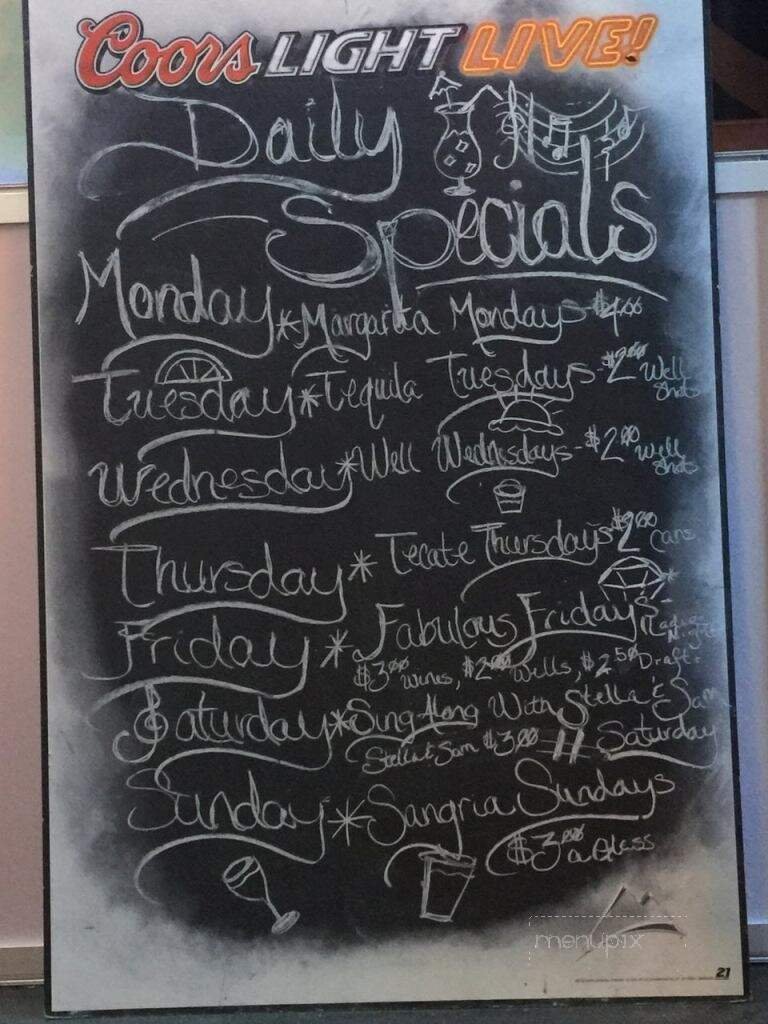 Coors LIGHT LIVE!
Daily
Specials
Monday * Margarita Mondays - $4.00
Tuesday * Tequila Tuesdays - $2.00 Well Shots
Wednesday * Well Wednesdays - $2.00 Well Shots
Thursday * Tecate Thursdays $2.00 Cans
Friday * Fabulous Fridays - Ladies Night
$3.00 wines, $2.00 wells, $2.50 Draft.
Saturday * Sing Along With Stella & Sam Saturday
Stella & Sam $3.00
Sunday * Sangria Sundays
$3.00 a Glass
menupix
21